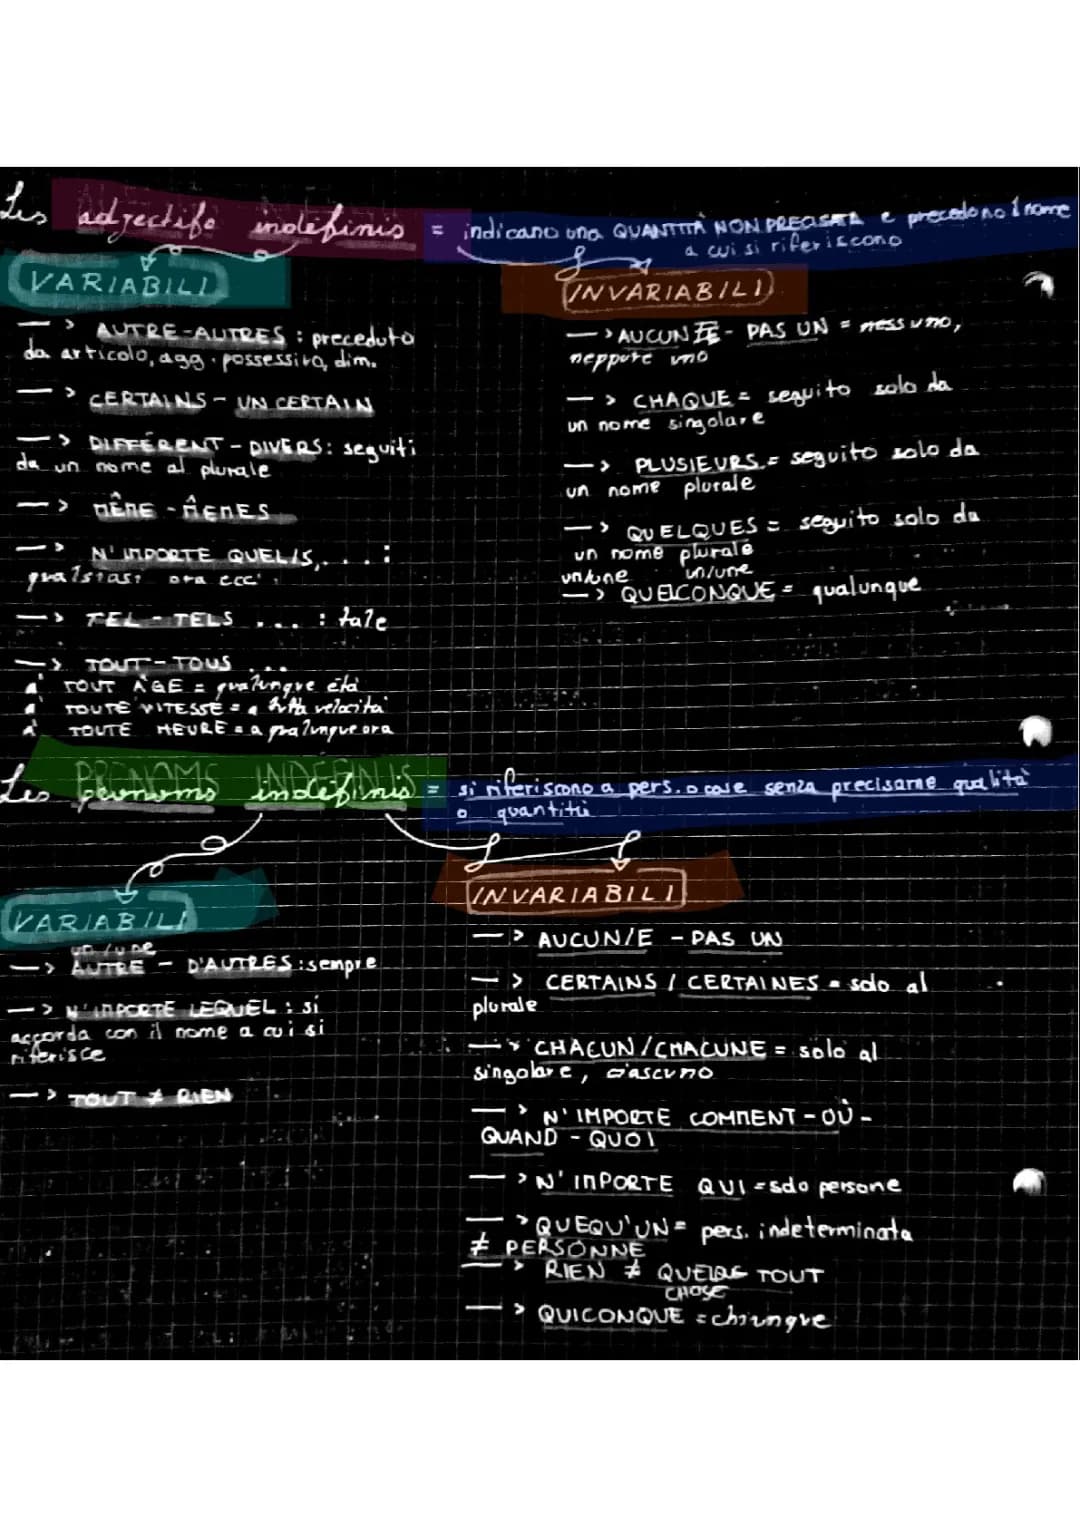 Les adjectifs indéfinis = indicano una QUANTITÀ NON PRECISATA e precedono il nome
a cui si riferiscono
VARIABILI
—> AUTRE-AUTRES : preceduto
da articolo, agg. possessivo, dim.
—> CERTAINS - UN CERTAIN
—> DIFFÉRENT - DIVERS: seguiti
da un nome al plurale
—> MÊME - MÊMES
—> N'IMPORTE QUEL/S, ... :
qualsiasi ora ecc.
—> TEL - TELS ... : tale
—> TOUT - TOUS ...
à TOUT ÂGE = qualunque età
à TOUTE VITESSE = a tutta velocità
à TOUTE HEURE = a qualunque ora
INVARIABILI
—> AUCUN/E - PAS UN = nessuno,
neppure uno
—> CHAQUE = seguito solo da
un nome singolare
—> PLUSIEURS = seguito solo da
un nome plurale
—> QUELQUES = seguito solo da
un nome plurale
un/une un/une
—> QUELCONQUE = qualunque
Les PRONOMS INDÉFINIS
pronoms indéfinis = si riferiscono a pers. o cose senza precisarne qualità
o quantità
VARIABILI
un/une
—> AUTRE - D'AUTRES : sempre
—> N'IMPORTE LEQUEL : si
accorda con il nome a cui si
riferisce
—> TOUT ≠ RIEN
INVARIABILI
—> AUCUN/E - PAS UN
—> CERTAINS / CERTAINES = solo al
plurale
—> CHACUN/CHACUNE = solo al
singolare, ciascuno
—> N'IMPORTE COMMENT - OÙ -
QUAND - QUOI
—> N'IMPORTE QUI = solo persone
—> QUEQU'UN = pers. indeterminata
≠ PERSONNE
—> RIEN ≠ QUELQUE TOUT
CHOSE
—> QUICONQUE = chiunque